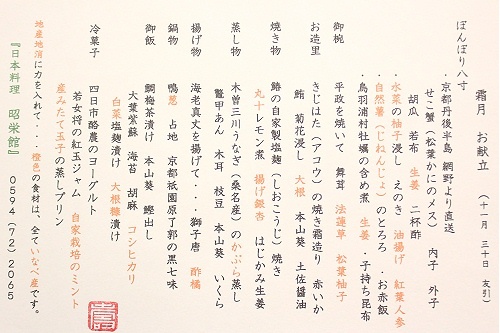 霜月　お献立　（十一月　三十日　友引）
ぼんぼり八寸
・京都丹後半島 網野より直送
せこ蟹（松葉かにのメス）　内子　外子
胡瓜　若布　生姜　二杯酢
・水菜の柚子浸し　えのき　油揚げ　紅葉人参
・自然薯（じねんじょ）のとろろ　・お赤飯
・鳥羽浦村牡蠣の含め煮　生姜　・子持ち昆布
御椀　平政を焼いて　舞茸　法蓮草　松葉柚子
お造里　きじはた（アコウ）の焼き霜造り　赤いか
鮪　菊花浸し　大根　本山葵　土佐醤油
焼き物　鰆の自家製塩麹（しおこうじ）焼き
丸十レモン煮　揚げ銀杏　はじかみ生姜
蒸し物　木曽三川うなぎ（桑名産）のかぶら蒸し
鼈甲あん　木耳　枝豆　本山葵　いくら
揚げ物　海老真丈を揚げて・・獅子唐　酢橘
鍋物　鴨葱　占地　京都祇園原了郭の黒七味
御飯　鯛梅茶漬け　本山葵　鰹出し
大葉紫蘇　海苔　胡麻　コシヒカリ
白菜塩麹漬け　大根糠漬け
冷菓子　四日市酪農のヨーグルト
若女将の紅玉ジャム　自家栽培のミント
産みたて玉子の蒸しプリン
地産地消に力を入れて・・橙色の食材は、全ていなべ産です。
『日本料理　昭栄館』　0594（72）2065